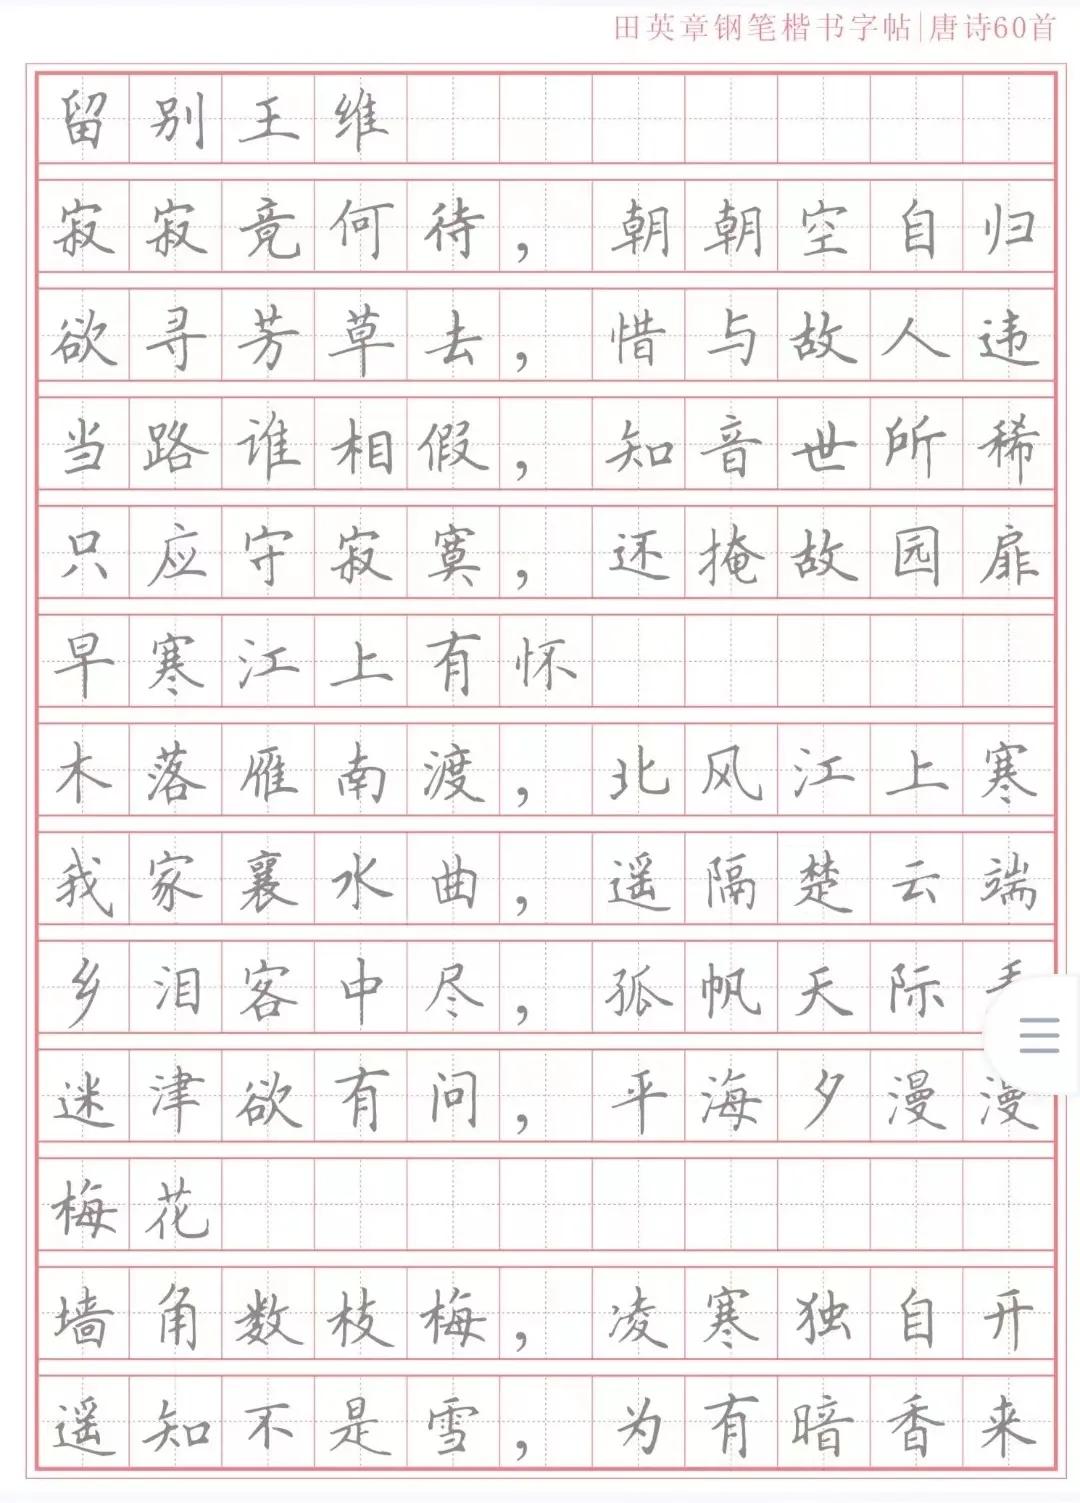 田英章钢笔楷书字帖|唐诗60首
留别王维
寂寂竟何待，朝朝空自归
欲寻芳草去，惜与故人违
当路谁相假，知音世所稀
只应守寂寞，还掩故园扉
早寒江上有怀
木落雁南渡，北风江上寒
我家襄水曲，遥隔楚云端
乡泪客中尽，孤帆天际
迷津欲有问，平海夕漫漫
梅花
墙角数枝梅，凌寒独自开
遥知不是雪，为有暗香来